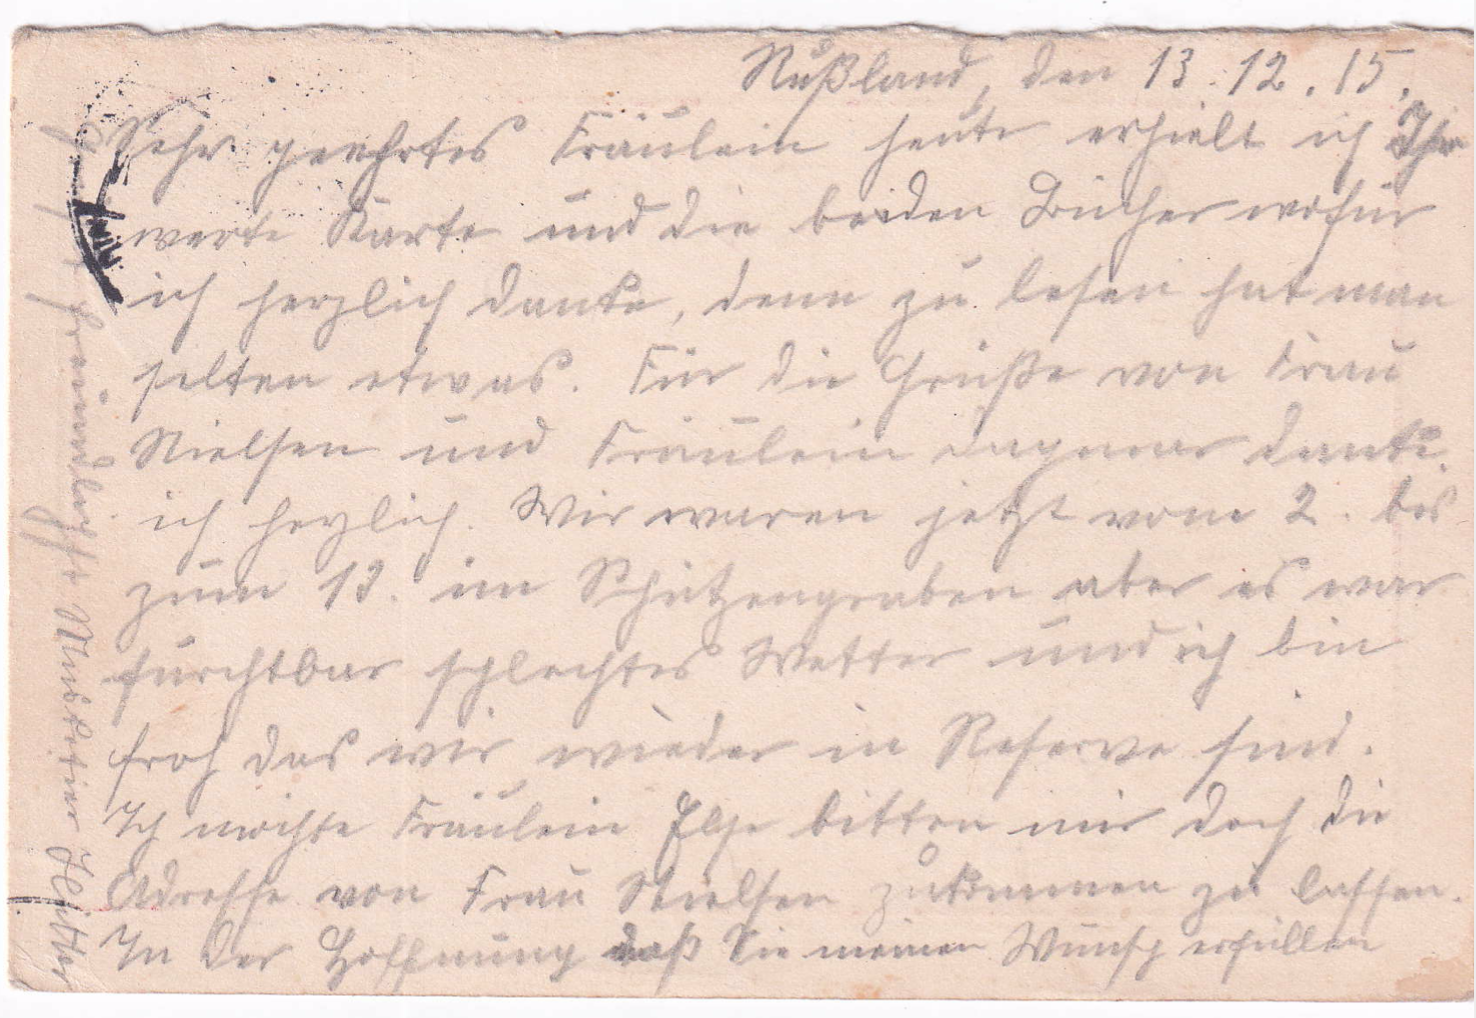 Rußland, den 13.12.15.
Sehr geehrtes Fräulein heute erhielt ich Ihre
werte Karte und die beiden Bücher wofür
ich herzlich danke, denn zu lesen hat man
selten etwas. Für die Grüße von Frau
Nielsen und Fräulein Dagmar danke
ich herzlich. Wir waren jetzt vom 2. bis
zum 13. im Schützengraben aber es war
furchtbar schlechtes Wetter und ich bin
froh das wir wieder in Reserve sind.
Ich möchte Fräulein bitten mir doch die
Adresse von Frau Nielsen zukommen zu lassen.
In der Hoffnung daß Sie meinen Wunsch erfüllen
freundlichst Musketier